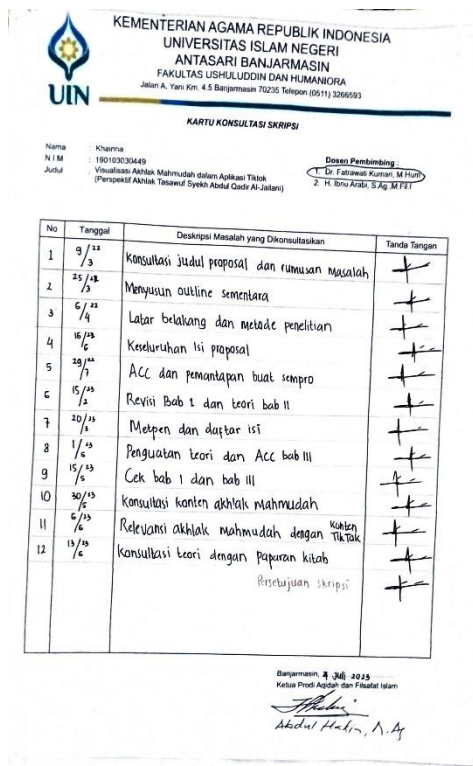 KEMENTERIAN AGAMA REPUBLIK INDONESIA
UNIVERSITAS ISLAM NEGERI
ANTASARI BANJARMASIN
FAKULTAS USHULUDDIN DAN HUMANIORA
Jalan A. Yani Km. 4.5 Banjarmasin 70235 Telepon (0511) 3266593
UIN
KARTU KONSULTASI SKRIPSI
Nama : Khairina
N I M : 190103030449
Judul : Visualisasi Akhlak Mahmudah dalam Aplikasi Tiktok
(Perspektif Akhlak Tasawuf Syekh Abdul Qadir Al-Jailani)
Dosen Pembimbing :
1. Dr. Fatrawati Kumari, M.Hum
2. H. Ibnu Arabi, S.Ag.,M.Fil.I
No Tanggal Deskripsi Masalah yang Dikonsultasikan Tanda Tangan
1 9/3 22 Konsultasi judul proposal dan rumusan Masalah
2 25/3 Menyusun outline sementara
3 6/4 22 Latar belakang dan metode penelitian
4 16/6 Keseluruhan Isi proposal
5 29/7 22 ACC dan pemantapan buat sempro
6 15/2 23 Revisi Bab 1 dan teori bab II
7 20/ 23 Metpen dan daftar isi
8 1/5 23 Penguatan teori dan ACC bab III
9 15/5 23 Cek bab 1 dan bab III
10 30/5 23 Konsultasi konten akhlak mahmudah
11 6/6 23 Relevansi akhlak mahmudah dengan Konten TikTok
12 13/6 23 Konsultasi teori dengan paparan kitab
Persetujuan skripsi
Banjarmasin, Juli 2023
Ketua Prodi Aqidah dan Filsafat Islam
Abdul Hakim, M.Ag